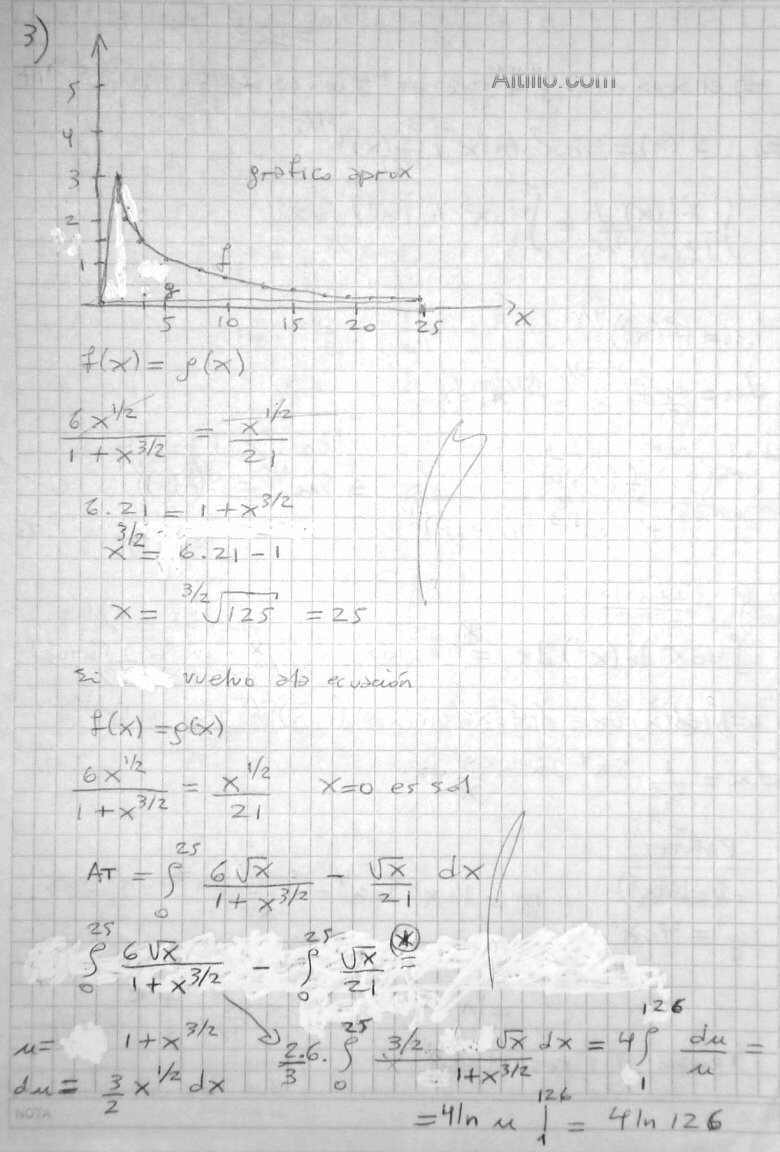 3)
Altillo.com
5
4
3
2
1
gráfico aprox
f
g
5 10 15 20 25 x
f(x) = g(x)
6x^{1/2} / (1 + x^{3/2}) = x^{1/2} / 21
6.21 = 1 + x^{3/2}
x^{3/2} = 6.21 - 1
x = ^{3/2}√125 = 25
Si vuelvo a la ecuación
f(x) = g(x)
6x^{1/2} / (1 + x^{3/2}) = x^{1/2} / 21 x=0 es sol
AT = ∫_0^{25} 6√x / (1 + x^{3/2}) - √x / 21 dx
∫_0^{25} 6√x / (1 + x^{3/2}) - ∫_0^{25} √x / 21 (*) =
u = 1 + x^{3/2} 2/3 . 6 . ∫_0^{25} 3/2 √x dx / (1 + x^{3/2}) = 4 ∫_1^{126} du / u =
du = 3/2 x^{1/2} dx
= 4 ln u |_1^{126} = 4 ln 126
NOTA